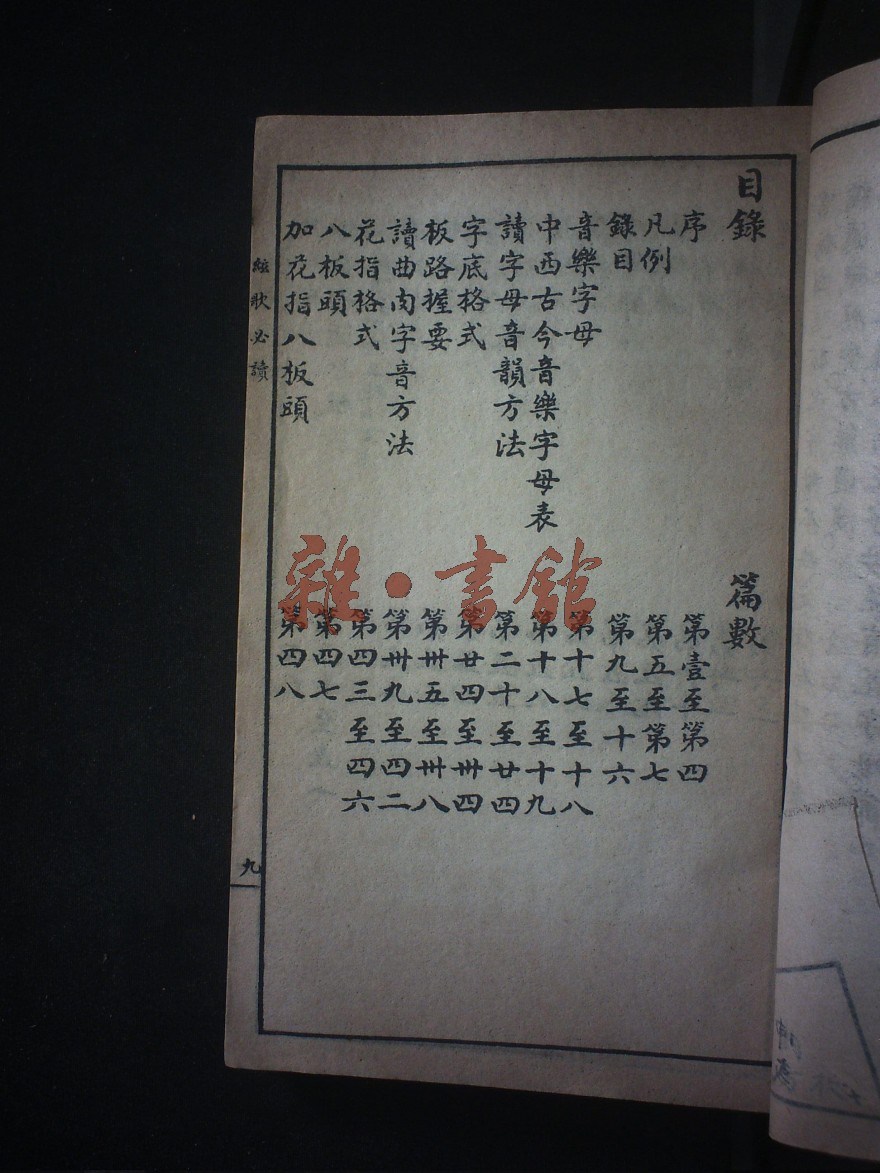 目錄　篇數
序　第壹至第四
凡例　第五至第七
錄目　第九至十六
音樂字母　第十七至十八
中西古今音樂字母表　第十八至十九
讀字母音韻方法　第二十至廿四
字底格式　第廿四至卅四
板路握要　第卅五至卅八
讀曲內字音方法　第卅九至四二
花指格式　第四三至四六
八板頭　第四七
加花指八板頭　第四八
絃歌必讀
九
雜·書館